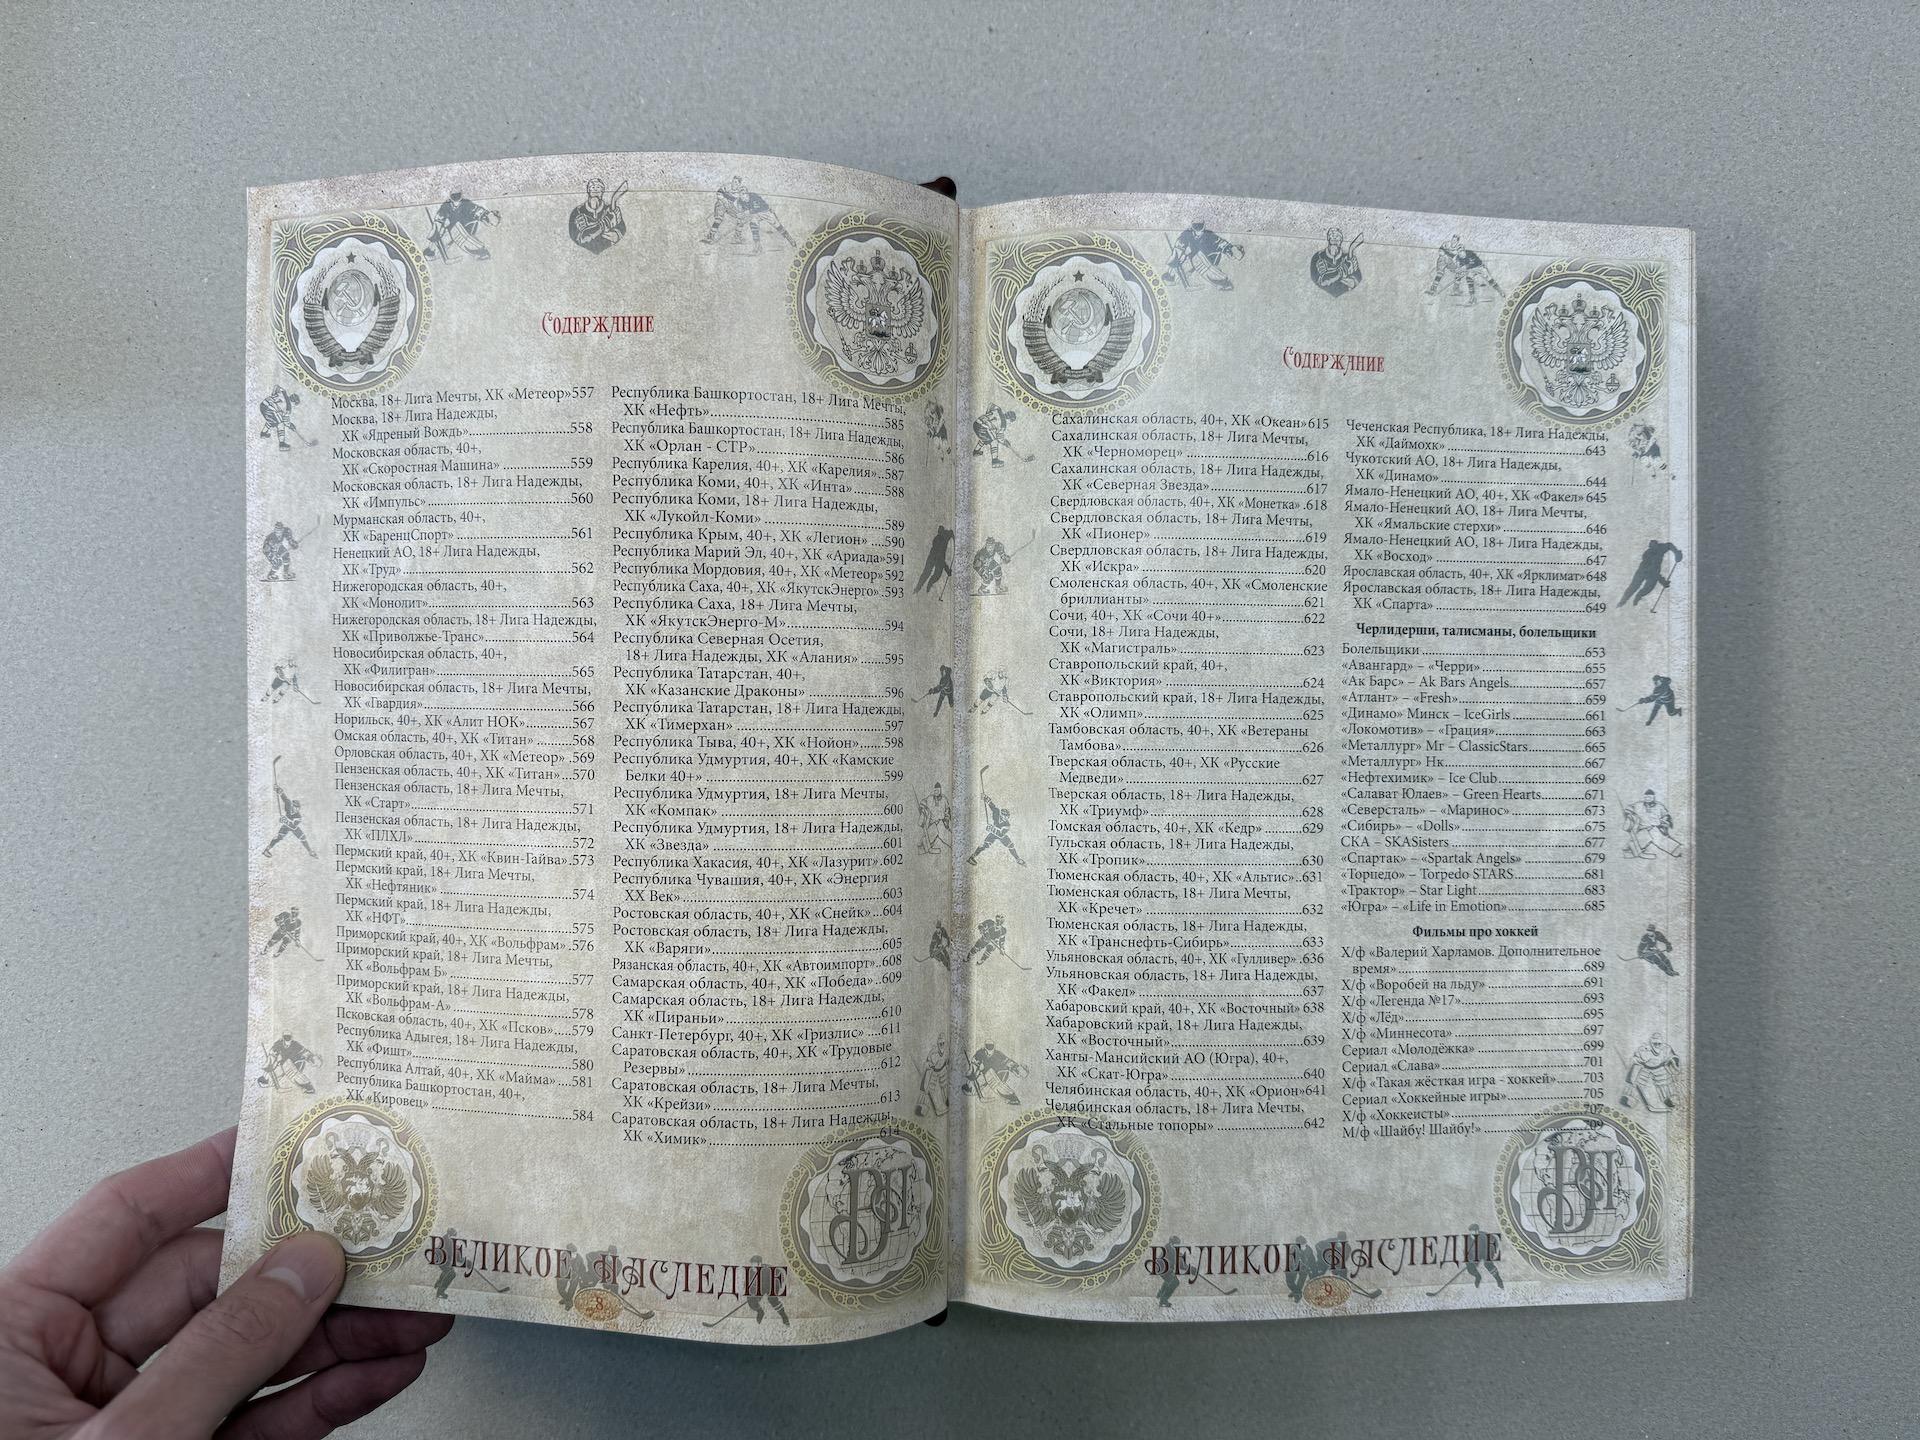 Содержание
Москва, 18+ Лига Мечты, ХК «Метеор»557
Москва, 18+ Лига Надежды,
ХК «Ядреный Вождь»..........558
Московская область, 40+,
ХК «Скоростная Машина» ..........559
Московская область, 18+ Лига Надежды,
ХК «Импульс»..........560
Мурманская область, 40+,
ХК «БаренцСпорт»..........561
Ненецкий АО, 18+ Лига Надежды,
ХК «Труд»..........562
Нижегородская область, 40+,
ХК «Монолит»..........563
Нижегородская область, 18+ Лига Надежды,
ХК «Приволжье-Транс»..........564
Новосибирская область, 40+,
ХК «Филигран»..........565
Новосибирская область, 18+ Лига Мечты,
ХК «Гвардия»..........566
Норильск, 40+, ХК «Алит НОК»..........567
Омская область, 40+, ХК «Титан» ..........568
Орловская область, 40+, ХК «Метеор» .569
Пензенская область, 40+, ХК «Титан»...570
Пензенская область, 18+ Лига Мечты,
ХК «Старт»..........571
Пензенская область, 18+ Лига Надежды,
ХК «ПЛХЛ»..........572
Пермский край, 40+, ХК «Квин-Гайва» .573
Пермский край, 18+ Лига Мечты,
ХК «Нефтяник» ..........574
Пермский край, 18+ Лига Надежды,
ХК «НФТ»..........575
Приморский край, 40+, ХК «Вольфрам» .576
Приморский край, 18+ Лига Мечты,
ХК «Вольфрам Б» ..........577
Приморский край, 18+ Лига Надежды,
ХК «Вольфрам-А» ..........578
Псковская область, 40+, ХК «Псков»....579
Республика Адыгея, 18+ Лига Надежды,
ХК «Фишт»..........580
Республика Алтай, 40+, ХК «Майма» ....581
Республика Башкортостан, 40+,
ХК «Кировец» ..........584
Республика Башкортостан, 18+ Лига Мечты,
ХК «Нефть»..........585
Республика Башкортостан, 18+ Лига Надежды,
ХК «Орлан - СТР»..........586
Республика Карелия, 40+, ХК «Карелия»..587
Республика Коми, 40+, ХК «Инта»..........588
Республика Коми, 18+ Лига Надежды,
ХК «Лукойл-Коми» ..........589
Республика Крым, 40+, ХК «Легион» ....590
Республика Марий Эл, 40+, ХК «Ариада»591
Республика Мордовия, 40+, ХК «Метеор»592
Республика Саха, 40+, ХК «ЯкутскЭнерго» .593
Республика Саха, 18+ Лига Мечты,
ХК «ЯкутскЭнерго-М»..........594
Республика Северная Осетия,
18+ Лига Надежды, ХК «Алания» ......595
Республика Татарстан, 40+,
ХК «Казанские Драконы» ..........596
Республика Татарстан, 18+ Лига Надежды,
ХК «Тимерхан» ..........597
Республика Тыва, 40+, ХК «Нойон»......598
Республика Удмуртия, 40+, ХК «Камские
Белки 40+» ..........599
Республика Удмуртия, 18+ Лига Мечты,
ХК «Компак»..........600
Республика Удмуртия, 18+ Лига Надежды,
ХК «Звезда»..........601
Республика Хакасия, 40+, ХК «Лазурит».602
Республика Чувашия, 40+, ХК «Энергия
ХХ Век»..........603
Ростовская область, 40+, ХК «Снейк»...604
Ростовская область, 18+ Лига Надежды,
ХК «Варяги»..........605
Рязанская область, 40+, ХК «Автоимпорт»..608
Самарская область, 40+, ХК «Победа» ..609
Самарская область, 18+ Лига Надежды,
ХК «Пираньи»..........610
Санкт-Петербург, 40+, ХК «Гризлис» ....611
Саратовская область, 40+, ХК «Трудовые
Резервы»..........612
Саратовская область, 18+ Лига Мечты,
ХК «Крейзи»..........613
Саратовская область, 18+ Лига Надежды,
ХК «Химик»..........614
ВП
ВЕЛИКОЕ НАСЛЕДИЕ
8
Содержание
Сахалинская область, 40+, ХК «Океан»615
Сахалинская область, 18+ Лига Мечты,
ХК «Черноморец» ..........616
Сахалинская область, 18+ Лига Надежды,
ХК «Северная Звезда» ..........617
Свердловская область, 40+, ХК «Монетка» .618
Свердловская область, 18+ Лига Мечты,
ХК «Пионер» ..........619
Свердловская область, 18+ Лига Надежды,
ХК «Искра» ..........620
Смоленская область, 40+, ХК «Смоленские
бриллианты» ..........621
Сочи, 40+, ХК «Сочи 40+»..........622
Сочи, 18+ Лига Надежды,
ХК «Магистраль» ..........623
Ставропольский край, 40+,
ХК «Виктория» ..........624
Ставропольский край, 18+ Лига Надежды,
ХК «Олимп»..........625
Тамбовская область, 40+, ХК «Ветераны
Тамбова»..........626
Тверская область, 40+, ХК «Русские
Медведи» ..........627
Тверская область, 18+ Лига Надежды,
ХК «Триумф» ..........628
Томская область, 40+, ХК «Кедр» ..........629
Тульская область, 18+ Лига Надежды,
ХК «Тропик»..........630
Тюменская область, 40+, ХК «Альтис»..631
Тюменская область, 18+ Лига Мечты,
ХК «Кречет» ..........632
Тюменская область, 18+ Лига Надежды,
ХК «Транснефть-Сибирь»..........633
Ульяновская область, 40+, ХК «Гулливер» .636
Ульяновская область, 18+ Лига Надежды,
ХК «Факел» ..........637
Хабаровский край, 40+, ХК «Восточный» 638
Хабаровский край, 18+ Лига Надежды,
ХК «Восточный»..........639
Ханты-Мансийский АО (Югра), 40+,
ХК «Скат-Югра» ..........640
Челябинская область, 40+, ХК «Орион»641
Челябинская область, 18+ Лига Мечты,
ХК «Стальные топоры» ..........642
Чеченская Республика, 18+ Лига Надежды,
ХК «Даймохк» ..........643
Чукотский АО, 18+ Лига Надежды,
ХК «Динамо»..........644
Ямало-Ненецкий АО, 40+, ХК «Факел» 645
Ямало-Ненецкий АО, 18+ Лига Мечты,
ХК «Ямальские стерхи» ..........646
Ямало-Ненецкий АО, 18+ Лига Надежды,
ХК «Восход» ..........647
Ярославская область, 40+, ХК «Ярклимат»648
Ярославская область, 18+ Лига Надежды,
ХК «Спарта» ..........649
Черлидерши, талисманы, болельщики
Болельщики ..........653
«Авангард» – «Черри»..........655
«Ак Барс» – Ak Bars Angels..........657
«Атлант» – «Fresh»..........659
«Динамо» Минск – IceGirls ..........661
«Локомотив» – «Грация»..........663
«Металлург» Мг – ClassicStars..........665
«Металлург» Нк..........667
«Нефтехимик» – Ice Club..........669
«Салават Юлаев» – Green Hearts..........671
«Северсталь» – «Маринос»..........673
«Сибирь» – «Dolls»..........675
СКА – SKASisters ..........677
«Спартак» – «Spartak Angels» ..........679
«Торпедо» – Torpedo STARS..........681
«Трактор» – Star Light..........683
«Югра» – «Life in Emotion»..........685
Фильмы про хоккей
Х/ф «Валерий Харламов. Дополнительное
время»..........689
Х/ф «Воробей на льду» ..........691
Х/ф «Легенда №17»..........693
Х/ф «Лёд»..........695
Х/ф «Миннесота» ..........697
Сериал «Молодёжка» ..........699
Сериал «Слава»..........701
Х/ф «Такая жёсткая игра - хоккей»......703
Сериал «Хоккейные игры»..........705
Х/ф «Хоккеисты»..........707
М/ф «Шайбу! Шайбу!»..........709
ВП
ВЕЛИКОЕ НАСЛЕДИЕ
9